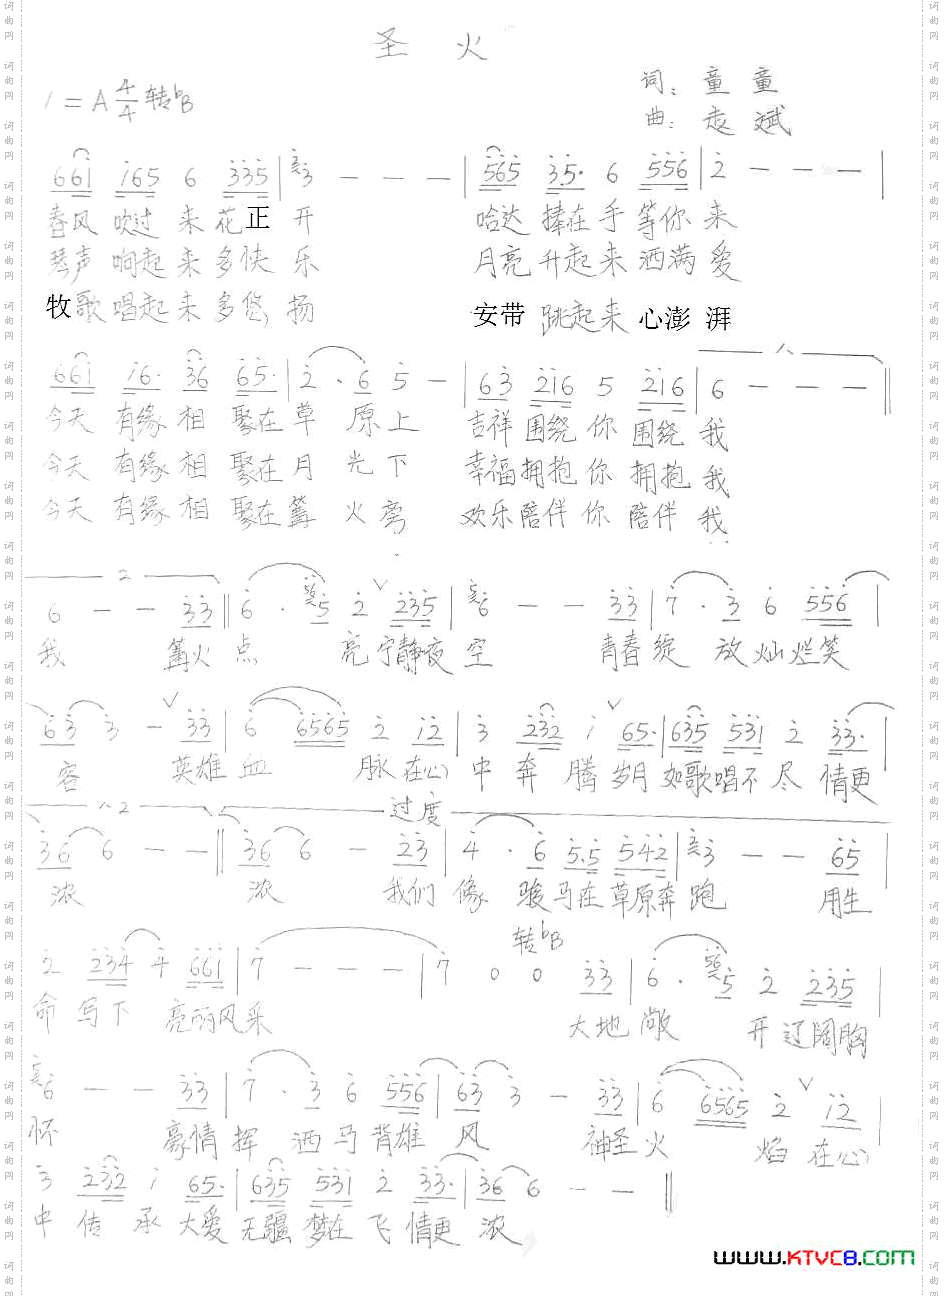 圣火
词: 童童
1=A 4/4 转bB
曲: 志斌
661 165 6 335 | 3 - - - | 565 35· 6 556 | 2 - - - |
春风 吹过 来 花正 开 哈达 捧在 手 等你 来
琴声 响起 来 多快 乐 月亮 升起 来 洒满 爱
牧歌 唱起 来 多悠 扬 安带 跳起 来 心澎 湃
661 16· 36 65· | 2 · 6 5 - | 63 216 5 216 | 6 - - - ||
今天 有缘 相 聚在 草 原上 吉祥 围绕 你 围绕 我
今天 有缘 相 聚在 月 光下 幸福 拥抱 你 拥抱 我
今天 有缘 相 聚在 篝 火旁 欢乐 陪伴 你 陪伴 我
2
6 - - 33 || 6 · 5 2 235 | 6 - - 33 | 7 · 3 6 556 |
我 篝火 点 亮 宁静夜 空 青春 绽 放 灿烂笑
63 3 - 33 | 6 6565 2 12 | 3 232 1 65· | 635 531 2 33· |
容 英雄 血 脉 在心 中 奔 腾 岁月 如歌 唱不 尽 情更
1.2 过度
36 6 - - || 36 6 - 23 | 4 · 6 5·5 542 | 3 - - 65 |
浓 浓 我们 像 骏 马在 草原奔 跑 用生
转bB
2 234 4 661 | 7 - - - | 7 0 0 33 | 6 · 5 2 235 |
命 写下 亮丽风采 大地 敞 开 辽阔胸
6 - - 33 | 7 · 3 6 556 | 63 3 - 33 | 6 6565 2 12 |
怀 豪情 挥 洒 马 背雄 风 神圣 火 焰 在心
3 232 1 65· | 635 531 2 33· | 36 6 - - ||
中 传 承 大爱 无疆 梦在 飞 情更 浓
www.KTVC8.com